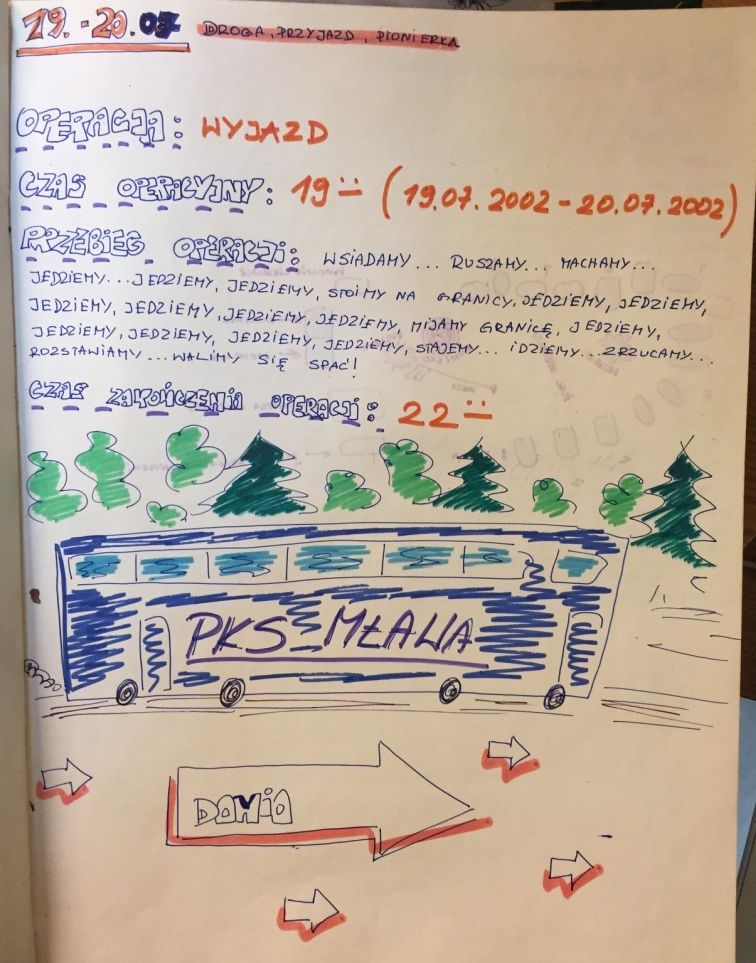 19.-20.07 DROGA, PRZYJAZD, PIONIERKA
OPERACJA: WYJAZD
CZAS OPERACYJNY: 19:= (19.07.2002 - 20.07.2002)
PRZEBIEG OPERACJI: WSIADAMY... RUSZAMY... MACHAMY...
JEDZIEMY...JEDZIEMY, JEDZIEMY, STOIMY NA GRANICY, JEDZIEMY, JEDZIEMY,
JEDZIEMY, JEDZIEMY, JEDZIEMY, JEDZIEMY, MIJAMY GRANICĘ, JEDZIEMY,
JEDZIEMY, JEDZIEMY, JEDZIEMY, JEDZIEMY, STAJEMY... IDZIEMY...ZRZUCAMY...
ROZSTAWIAMY...WALIMY SIĘ SPAĆ!
CZAS ZAKOŃCZENIA OPERACJI: 22:=
PKS MŁAWA